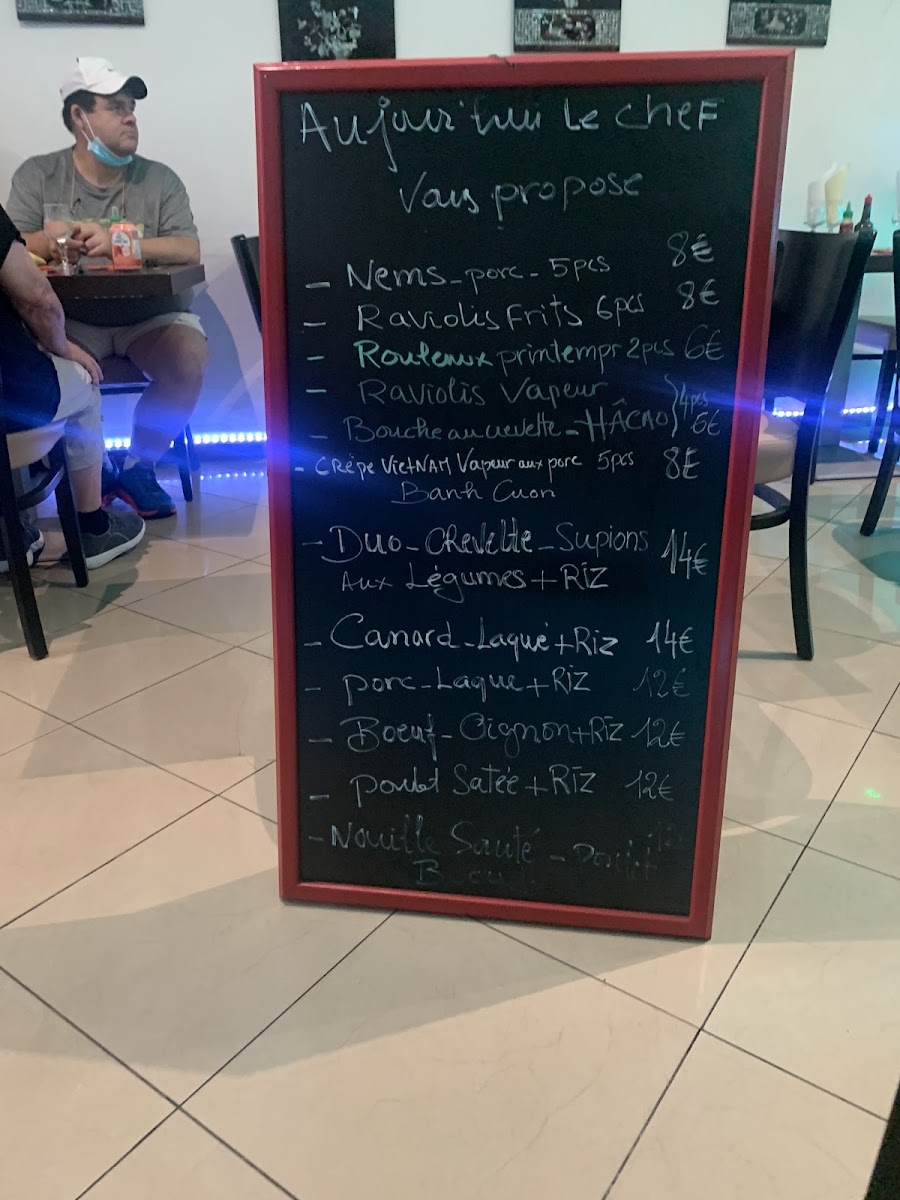 Aujour'hui Le Chef
Vous propose
- Nems - porc - 5pcs 8€
- Raviolis Frits 6pcs 8€
- Rouleaux printemps 2pcs 6€
- Raviolis Vapeur
- Bouche au crevette - HÂCAO } 4pcs 6€
- Crêpe VietNAM Vapeur aux porc 5pcs 8€
Banh Cuon
- Duo - Crevette - Supions 14€
Aux Légumes + Riz
- Canard - Laqué + Riz 14€
- porc - Laque + Riz 12€
- Boeuf - Oignon + Riz 12€
- poulet Satée + Riz 12€
- Nouille Sauté -